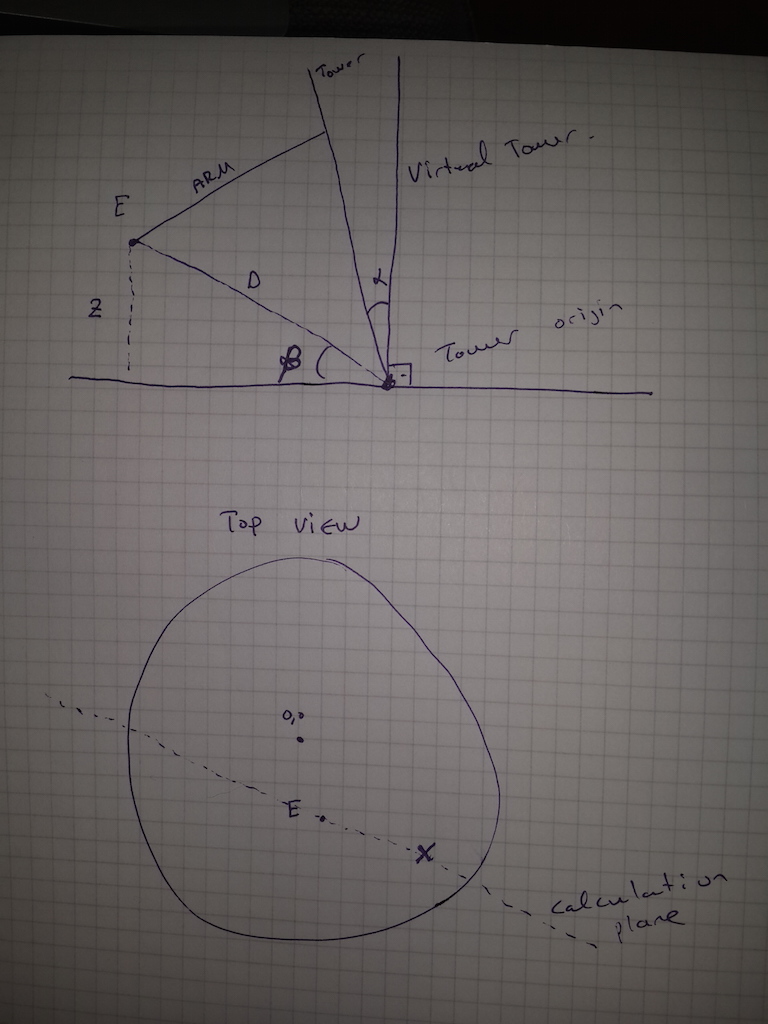 Tower
Virtual Tower.
ARM
E
D
α
Z
β
Tower origin
Top VIEW
0,0
E
X
calculation
plane